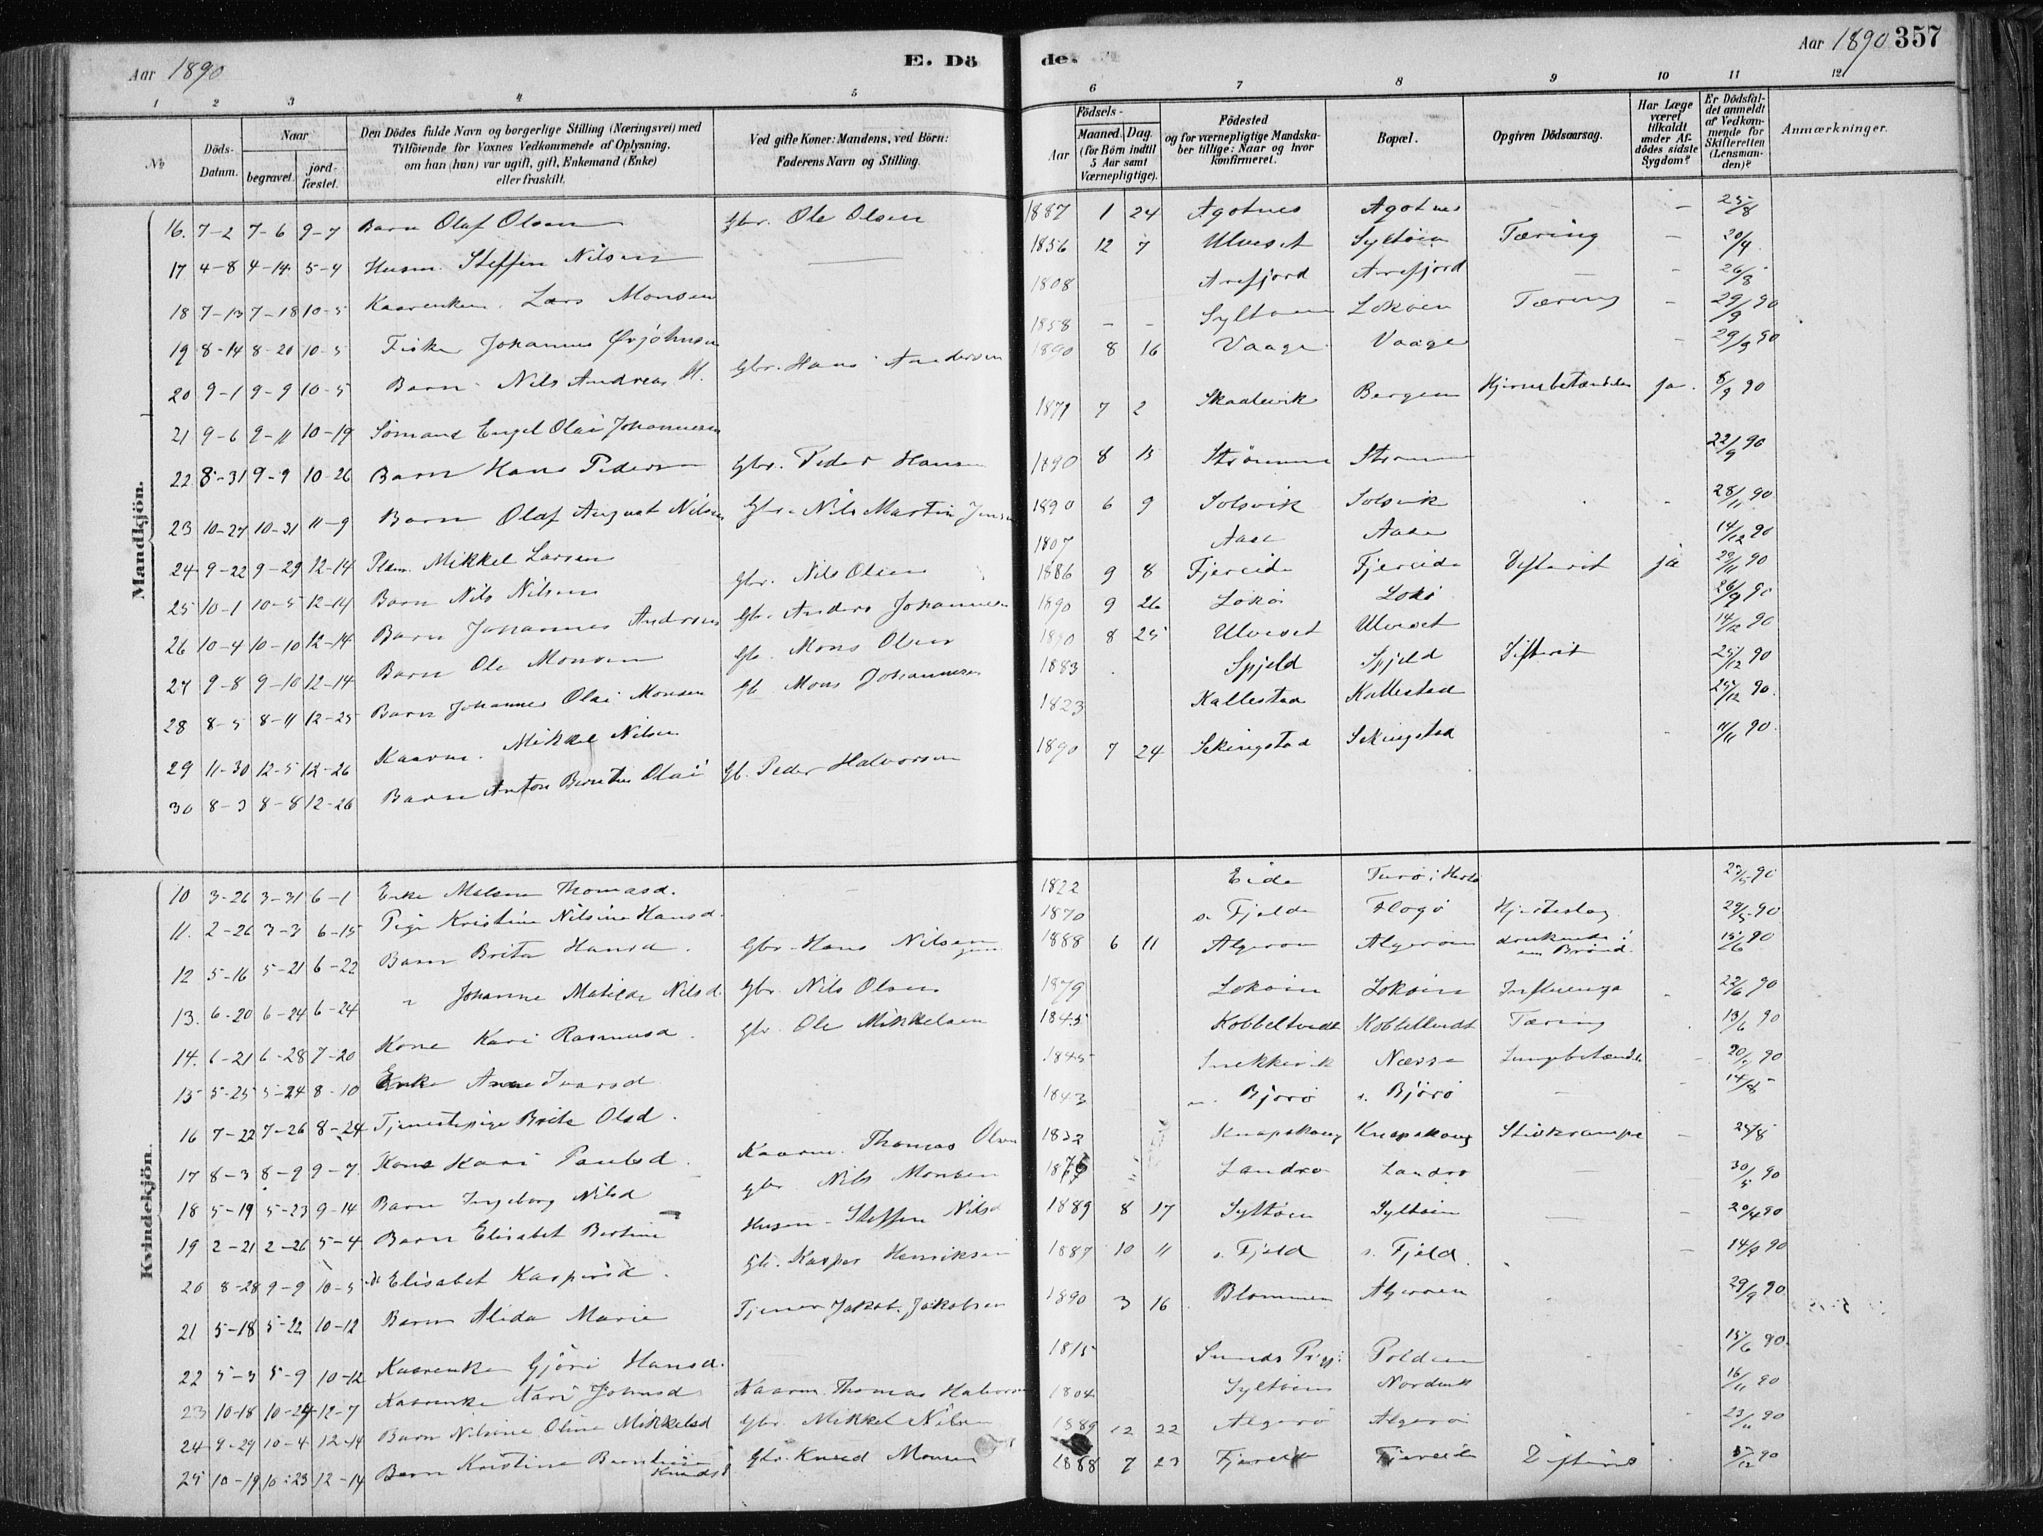 Aar 1890
E. Dö
de.
Aar 1890 357
1 2 3 4 5 6 7 8 9 10 11 12
No
Döds-Datum.
Naar begravet. jordfæstet.
Den Dödes fulde Navn og borgerlige Stilling (Næringsvei) med Tilföiende for Voxnes Vedkommende af Oplysning, om han (hun) var ugift, gift, Enkemand (Enke) eller fraskilt.
Ved gifte Koner: Mandens, ved Börn: Faderens Navn og Stilling.
Födsels-
Aar
Maaned. Dag. (for Börn indtil 5 Aar samt Værnepligtige).
Födested og for værnepligtige Mandskaber tillige: Naar og hvor konfirmeret.
Bopæl.
Opgiven Dödsaarsag.
Har Læge været tilkaldt under Afdödes sidste Sygdom?
Er Dödsfaldet anmeldt af Vedkommende for Skifteretten (Lensmanden)?
Anmærkninger.
Mandkjön.
16. 7-2 7-6 9-7 Barn Olaf Olsen Gbr. Ole Olsen 1887 1 24 Agotnes Agotnes - 25/8
17 4-8 4-14 5-4 Husm. Steffen Nilsen 1856 12 7 Ulveset Syltøen Tæring - 20/4
18 7-13 7-18 10-5 Kaarenkem. Lars Monsen 1808 Arefjord Arefjord - 26/8
19 8-14 8-20 10-5 Fisker Johannes Øvjohnsen 1858 - - Syltøen Lokøen Tæring - 29/9 90
20 9-1 9-9 10-5 Barn Nils Andreas H. Gbr. Hans Andersen 1890 8 16 Vaage Vaage - 29/9 90
21 9-6 9-11 10-19 Sømand Engel Olai Johannesen 1871 7 2 Skaalevik Bergen Hjernebetændelse ja. 8/9 90
22 8-31 9-9 10-26 Barn Hans Pedersen Gbr. Peder Hansen 1890 8 15 Strømme Strømme 22/9 90
23 10-27 10-31 11-9 Barn Olaf August Nilsen Gbr. Nils Martin Jensen 1890 6 9 Solsvik Solsvik 28/11 90
24 9-22 9-29 12-14 Mikkel Larsen 1807 Aase Aase 14/12 90
25 10-1 10-5 12-14 Barn Nils Nilsen Gbr. Nils Olsen 1886 9 8 Fjereide Fjereide Difterit ja 29/11 90
26 10-4 10-10 12-14 Barn Johannes Andersen Gbr. Anders Johannesen 1890 9 26 Lokø Lokø 26/9 90
27 9-8 9-10 12-14 Barn Ole Monsen Gb. Mons Olsen 1890 8 25 Ulveset Ulveset 14/12 90
28 8-5 8-11 12-25 Barn Johannes Olai Monsen Gb. Mons Johannesen 1883 Spjeld Spjeld Difterit 25/12 90
29 11-30 12-5 12-26 Kaarm. Mikkel Nilsen 1823 Kallestad Kallestad 25/12 90.
30 8-3 8-8 12-26 Barn Anton Berntin Olai Gb. Peder Halvorsen 1890 7 24 Sekingstad Sekingstad 11/11 90.
Kvindekjön.
10 3-26 3-31 6-1 Enke Thomasd. 1822 Eide Turø i Herlø 90
11. 2-26 3-3 6-15 Pige Kristine Nilsine Hansd. 1870 Fjelde Flogø Hjerteslag 29/5 90
12 5-16 5-21 6-22 Barn Brita Hansd. Gbr. Hans Nilsen 1888 6 11 Algerøen Algerøen druknede i en Brønd. 15/6 90
13. 6-20 6-24 6-24 " Johanne Matilde Nilsd. Gbr. Nils Olsen 1879 Lokøen Lokøen Influenza 22/6 90
14. 6-21 6-28 7-20 Kone Kari Rasmusd. Gbr. Ole Mikkelsen 1845 Kobbeltvedt Kobbeltvedt Tæring 13/6 90
15 5-25 5-24 8-10 Enke Anna Ivarsd. 1845 Snekkevik Næsse Lungebetændelse 90
16 7-22 7-26 8-24 Tjenestepige Brita Olsd. 1843 Bjørø Bjørø - 14/8
17 8-3 8-9 9-7 Kone Kari Paulsd. Kaarm. Thomas Olsen 1832 Knapskoug Knapskoug Stivkrampe - 25/8
18 5-19 5-23 9-14 Barn Ingeborg Nilsd Gbr Nils Monsen 1876 " Landrø Landrø - 30/5 90
19 2-21 2-26 5-4 Barn Elisabet Bertine Husm. Steffen Nilsd 1889 8 17 Syltøen Syltøen - 20/4 90
20 8-28 9-9 10-5 Elisabet Kaspersd. Gb. Kasper Henriksen 1887 10 11 Fjeld Fjeld 14/9 90
21 5-18 5-22 10-12 Barn Alida Marie Tjener Jakob Jakobsen 1890 3 16 Blommen Algerøen 29/9 90
22 5-3 5-9 10-12 Kaarenke Gjøri Hansd. 1815 Sunds Prgj: Polden 15/6 90
23 10-18 10-24 12-7 Kaarenke Kari Johnsd Kaarm. Thomas Halvorsen 1804 Syltøen Nordvik 16/11 90
24 9-29 10-4 12-14 Barn Nilsine Oline Mikkelsd Gbr. Mikkel Nilsen 1889 12 22 Algerø Algerø 23/11 90
25 10-19 10-23 12-14 Barn Kristine Berntine Knudsd Gbr. Knud Monsen 1888 7 23 Fjereide Fjereide Difterit 90